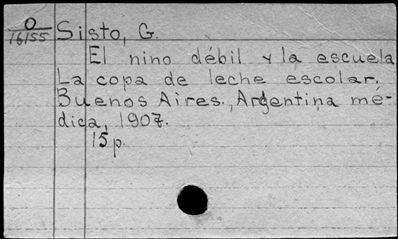 O
16155
Sisto, G.
El nino débil y la escuela
La copa de leche escolar.
Buenos Aires., Argentina mé-
dica, 1907.
15p.